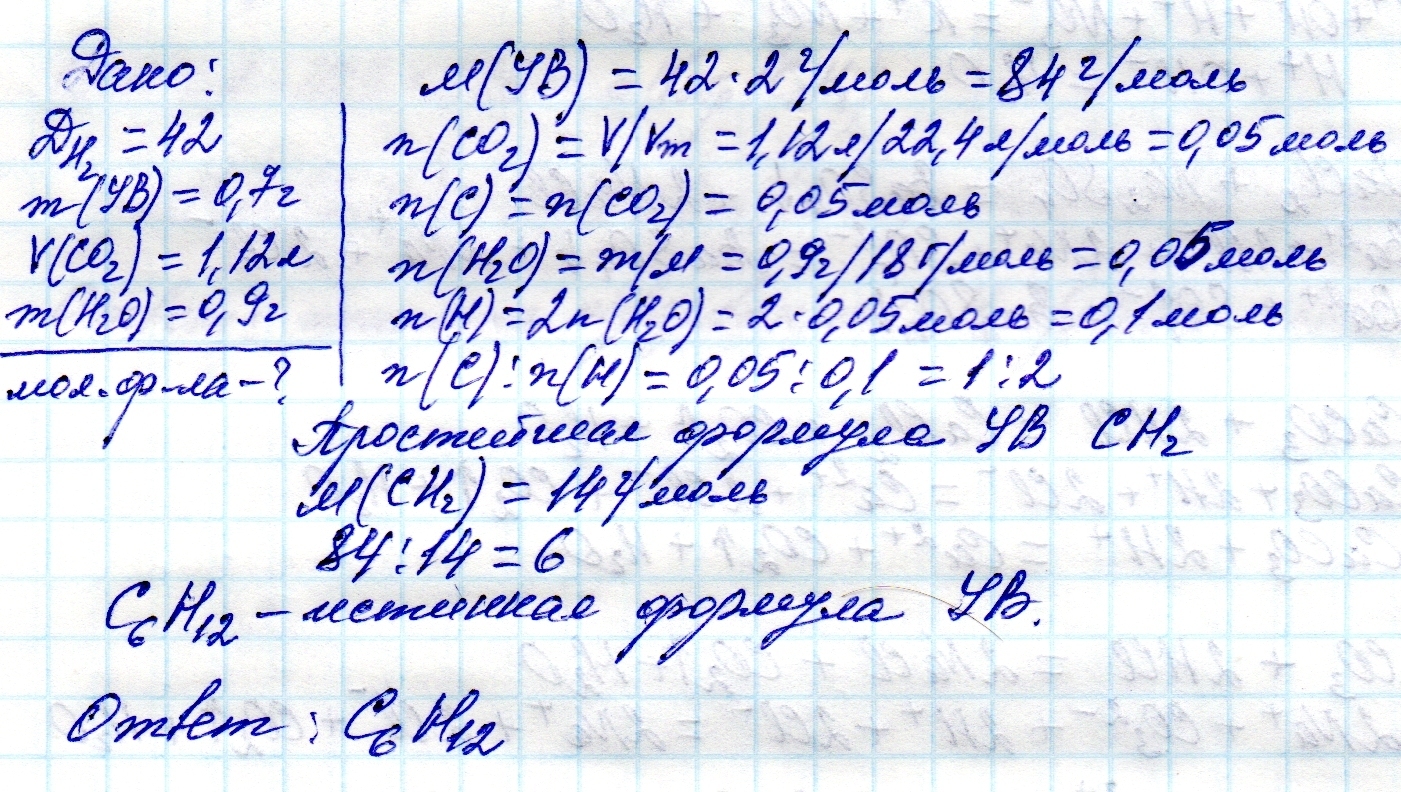 Дано:
D H₂ = 42
m(УВ) = 0,7г
V(CO₂) = 1,12л
m(H₂O) = 0,9г
мол. ф-ла – ?
M(УВ) = 42 · 2 г/моль = 84 г/моль
n(CO₂) = V/Vm = 1,12л/22,4л/моль = 0,05моль
n(C) = n(CO₂) = 0,05моль
n(H₂O) = m/M = 0,9г/18г/моль = 0,05моль
n(H) = 2n(H₂O) = 2 · 0,05моль = 0,1моль
n(C) : n(H) = 0,05 : 0,1 = 1 : 2
Простейшая формула УВ CH₂
M(CH₂) = 14г/моль
84 : 14 = 6
C₆H₁₂ – истинная формула УВ.
Ответ: C₆H₁₂